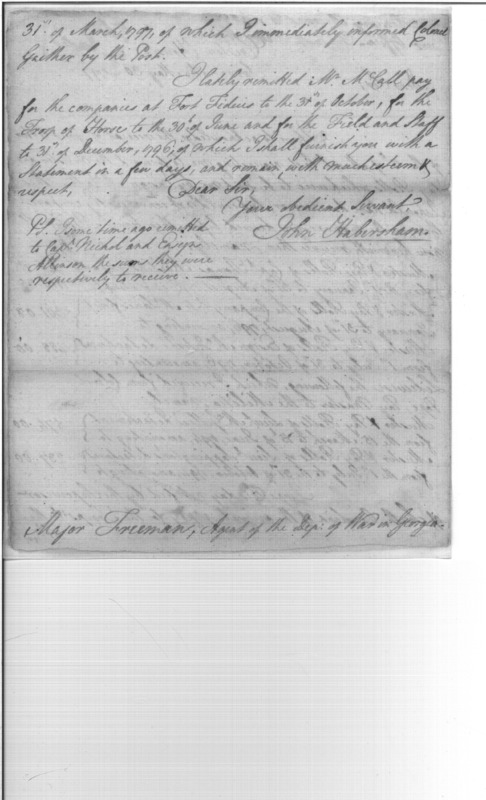 31st of March, 1797, of which I immediately informed Colonel
Gaither by the Post.
I lately remitted Mr. McCall pay
for the companies at Fort Fidius to the 31st of October, for the
Troop of Horse to the 30th of June and for the Field and Staff
to 31st of December, 1796, of which I shall furnish you with a
Statement in a few days, and remain with much esteem &
respect,
Dear Sir,
Your obedient Servant
John Habersham.
PS. I some time ago remitted
to Capt. Nichol and Ensign
the sums they were
respectively to receive.
Major Freeman, Agent of the Dept. of War in Georgia.